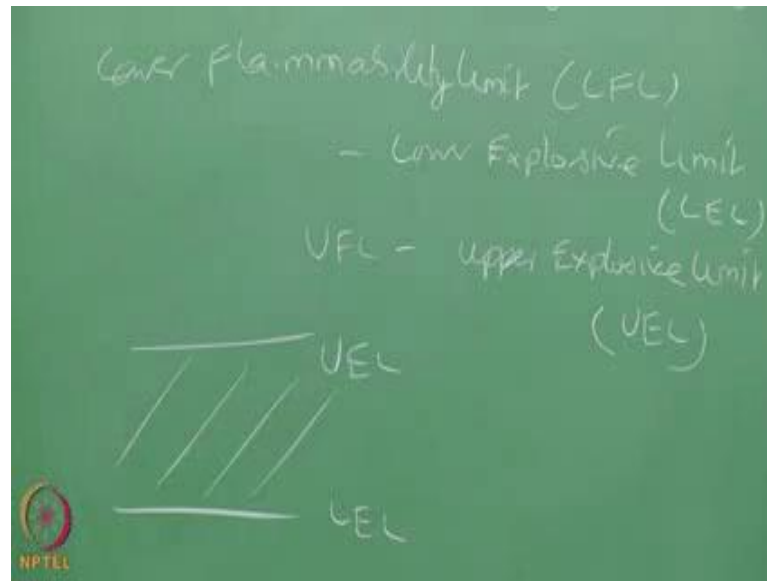 Lower Flammability Limit (LFL)
- Lower Explosive Limit
(LEL)
UFL - Upper Explosive Limit
(UEL)
UEL
LEL
NPTEL